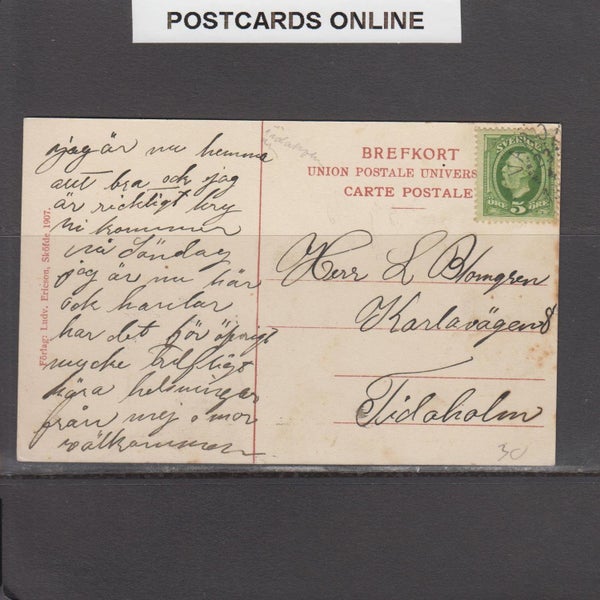 POSTCARDS ONLINE
jag är nu hemma
allt bra och jag
är richtigt kry
ni kommer
nu Söndag
jag är nu här
och
har det för öfrigt
mycke
kära helsningar
från mej o mor
välkommen
Förlag: Ludv. Ericson, Sköfde 1907.
Tidaholm
BREFKORT
UNION POSTALE UNIVERS
CARTE POSTALE
SVERIGE
ÖRE 5 ÖRE
Herr L Blomgren
Karlavägen 8
Tidaholm
30